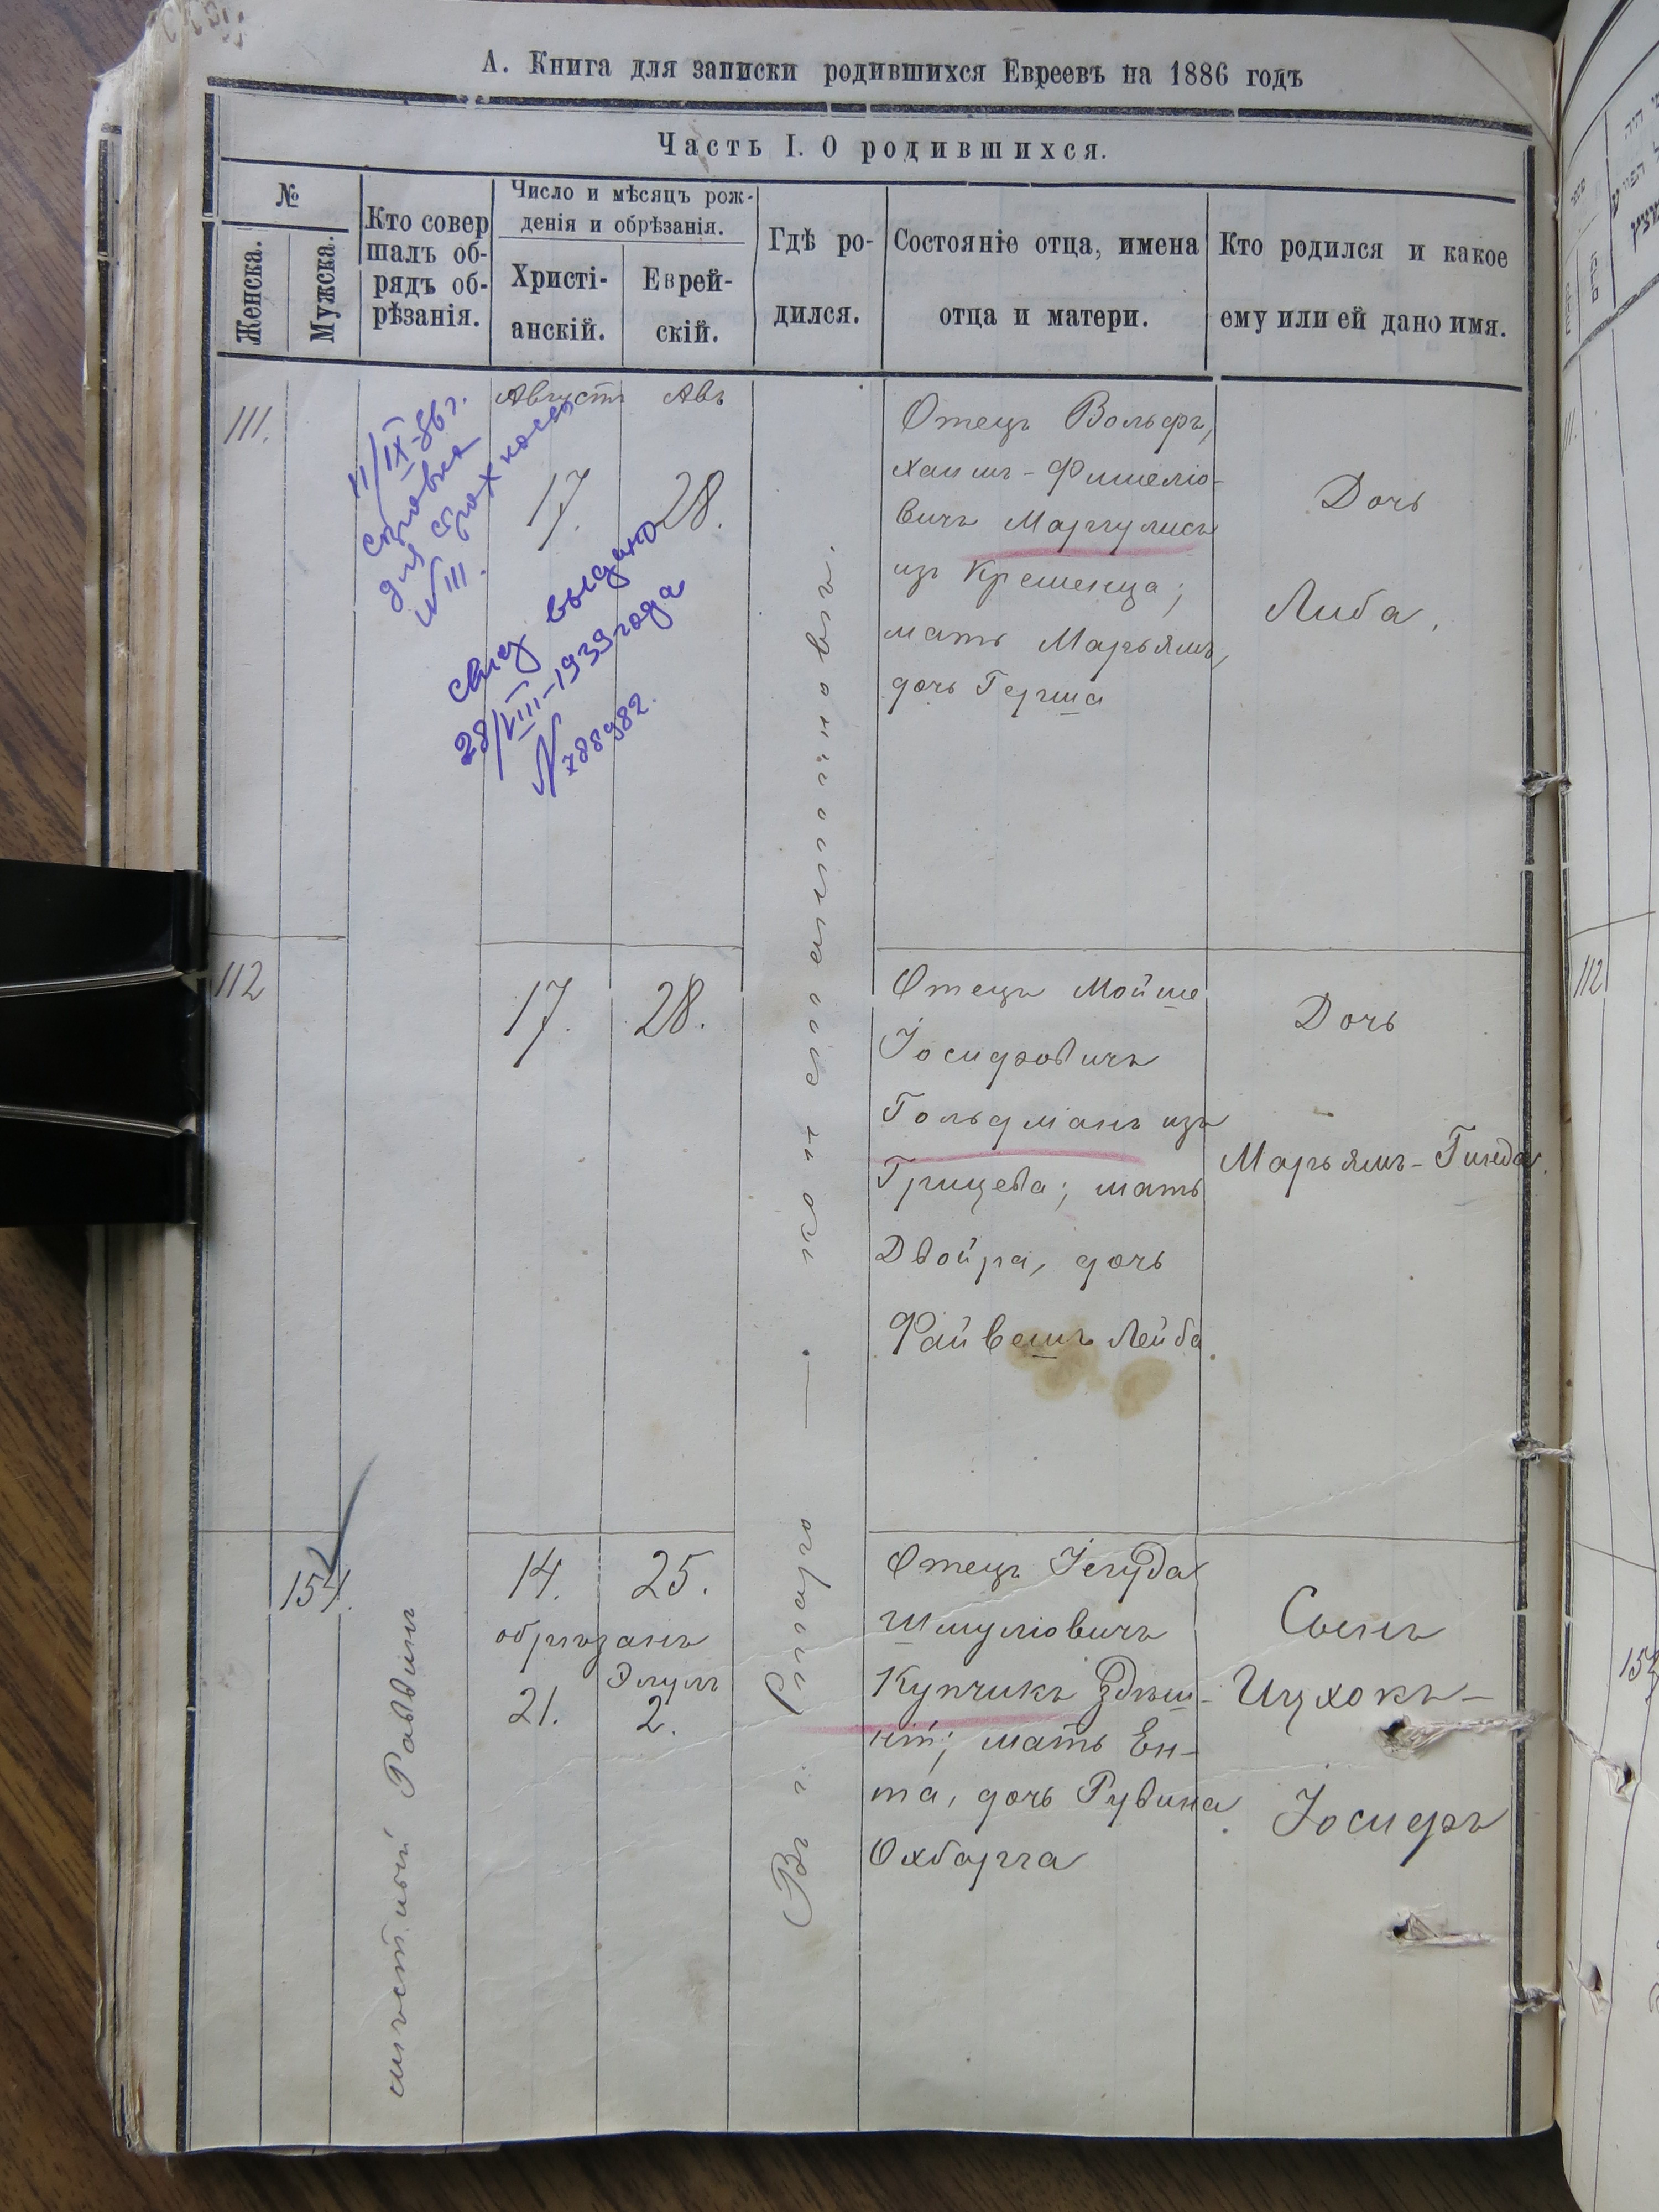 А. Книга для записки родившихся Евреевъ на 1886 годъ
Часть I. О родившихся.
№
Женска.
Мужска.
Кто совер
шалъ об-
рядъ об-
рѣзанія.
Число и мѣсяцъ рож-
денія и обрѣзанія.
Христі-
анскій.
Еврей-
скій.
Гдѣ ро-
дился.
Состояніе отца, имена
отца и матери.
Кто родился и какое
ему или ей дано имя.
111.
11/IX-86г.
справка
для
№111.
Августъ
Авъ
17.
28.
свид выдано
28/VIII-1939 года
N 788982.
Отецъ Вольфъ,
Хаимъ-Фишеліо-
вичъ Маргулисъ
изъ Кременца;
мать Марьямъ,
дочь Герша
Дочь
Либа.
112
17.
28.
Отецъ Мойше
Іосифовичъ
Гольдманъ изъ
Грицева; мать
Двойра, дочь
Файвешъ Лейба
Дочь
Марьямъ-Гинда.
154.
мѣстный Раввинъ
14.
25.
обрѣзанъ
Элулъ
21.
2.
Въ г.
Отецъ Іегуда
Шмуліовичъ
Купчикъ здѣш-
ній; мать Ен-
та, дочь Рувина
Охбарга
Сынъ
Ицхокъ-
Іосифъ
112